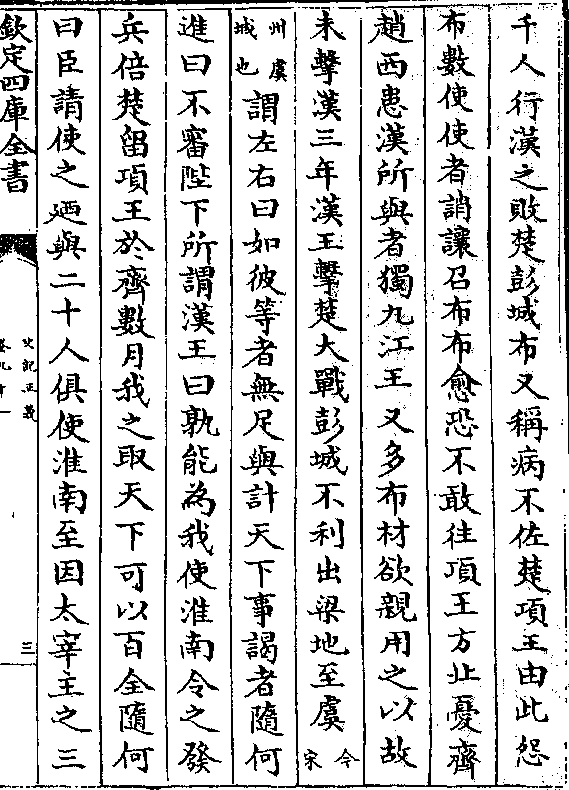 千人行漢之敗楚彭城布又稱病不佐楚項王由此怨
布數使使者誚讓召布布愈恐不敢往項王方北憂齊
趙西患漢所與者獨九江王又多布材欲親用之以故
未擊漢三年漢王擊楚大戰彭城不利出梁地至虞今宋
州虞城也謂左右曰如彼等者無足與計天下事謁者隨何
進曰不審陛下所謂漢王曰孰能為我使淮南令之發
兵倍楚留項王於齊數月我之取天下可以百全隨何
曰臣請使之廼與二十人俱使淮南至因太宰主之三
欽定四庫全書
史記正義
卷九十一
三